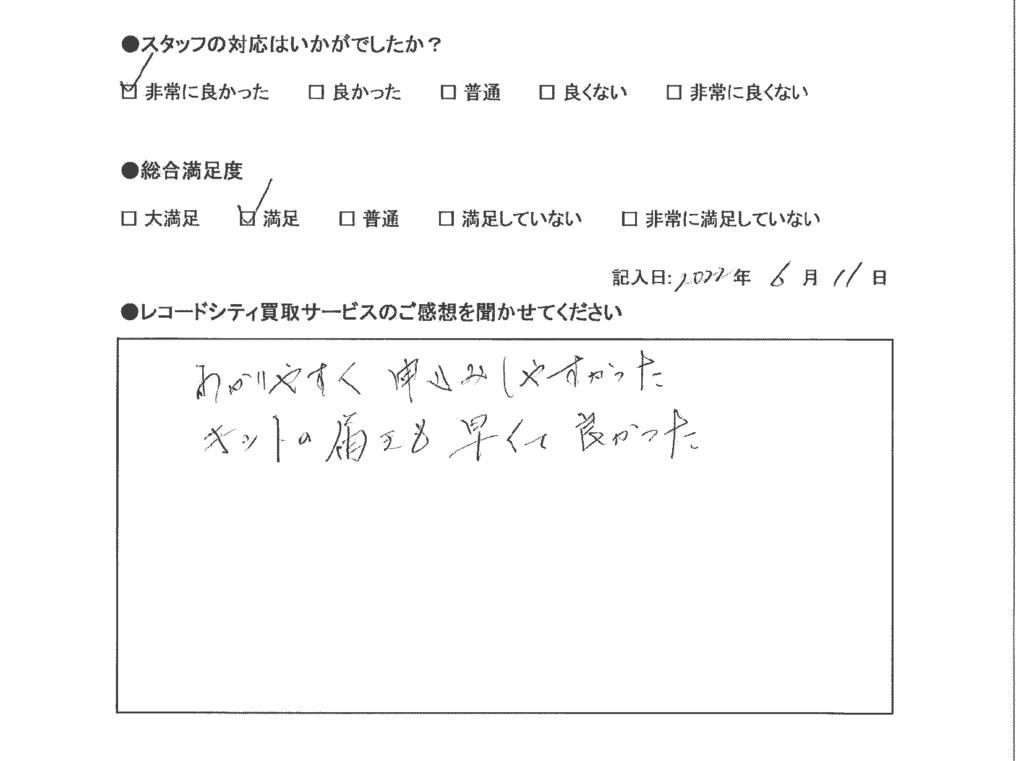 ●スタッフの対応はいかがでしたか？
☑ 非常に良かった □ 良かった □ 普通 □ 良くない □ 非常に良くない
●総合満足度
□ 大満足 ☑ 満足 □ 普通 □ 満足していない □ 非常に満足していない
記入日: 2022 年 6 月 11 日
●レコードシティ買取サービスのご感想を聞かせてください
わかりやすく 申込みしやすかった
キットの届きも 早くて 良かった